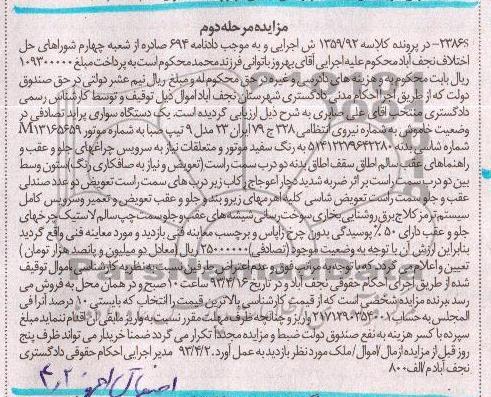 مزایده مرحله دوم
۲۳۸۶S- در پرونده کلاسه ۱۳۵۹/۹۲ ش اجرایی و به موجب دادنامه ۶۹۴ صادره از شعبه چهارم شوراهای حل
اختلاف نجف آباد محکوم علیه اجرایی آقای بهروز باتوانی فرزند محمد محکوم است به پرداخت مبلغ ۱۰۹۳۰۰۰۰
ریال بابت محکوم به و هزینه های دادرسی و غیره در حق محکوم له و مبلغ ریال نیم عشر دولتی در حق صندوق
دولت که از طریق اجرا احکام مدنی دادگستری شهرستان نجف آباد اموال ذیل توقیف و توسط کارشناس رسمی
دادگستری منتخب آقای علی صابری به شرح ذیل ارزیابی گردیده است. یک دستگاه سواری پراید تصادفی در
وضعیت خاموش به شماره نیروی انتظامی ۳۳۸ ج ۷۹ ایران ۲۳ مدل ۹ تیپ صبا به شماره موتور M۱۳۱۶۵۶۵۹
شماره شاسی بدنه به رنگ سفید موتور و متعلقات نیاز به سرویس چراغهای جلو و عقب و
راهنماهای عقب سالم اطاق سقف اطاق بدنه دو درب سمت راست (تعویض و نیاز به صافکاری رنگ) ستون وسط
بین دو درب سمت راست بر اثر ضربه شدید دچار اعوجاج و رکاب زیر درب های سمت راست تعویض دو عدد صندلی
عقب و جلو سمت راست تعویض شاسی کلیه اهرمهای زیر و بند جلو و عقب تعویض و تعمیر وسرویس کامل
سیستم ترمز کلاچ برق روشنایی بخاری سخت رسانی شیشه های عقب و جلو سمت چپ سالم لاستیک چرخهای
جلو و عقب دارای ۵۰٪ پوسیدگی بدون چرخ زاپاس و برچسب معاینه فنی بازدید و مورد معاینه فنی واقع گردید
بنابراین ارزش آن با توجه به وضعیت موجود (تصادفی) ۲۵۰۰۰۰۰۰ ریال معادل دو میلیون و پانصد هزار تومان)
تعیین و اعلام می گردد که با توجه به مراتب فوق و عدم اعتراض طرفین نسبت به نظریه کارشناسی اموال توقیف
شده از طریق اجرای احکام حقوقی نجف آباد و در تاریخ ۹۳/۴/۱۶ ساعت ۱۰ صبح و در همان محل به فروش می
رسد برنده مزایده شخصی است که از قیمت کارشناسی بالاترین قیمت را انتخاب که بایستی ۱۰ درصد آنرا فی
المجلس به حساب ۲۱۷۱۲۹۰۳۵۴۰۰۱ واریز و چنانچه ظرف مهلت مقرر نسبت به واریز مابقی آن اقدام ننماید مبلغ
سپرده با کسر هزینه به نفع صندوق دولت ضبط و مزایده مجدداً تکرار می گردد ضمناً خریدار می تواند ظرف پنج
روز قبل از مزایده از مال/اموال/ملک مورد نظر بازدید به عمل آورد. ۹۳/۴/۲ مدیر اجرایی احکام حقوقی دادگستری
نجف آباد م/الف ۸۰۰